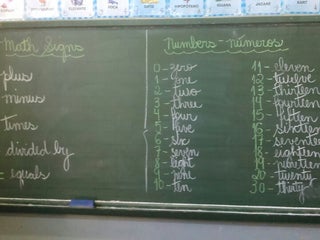 ELEFANTE
HIPOPÓTAMO
JAGUAR
Math Signs
plus
minus
times
divided by
= equals
Numbers - números
0 - zero
1 - one
2 - two
3 - three
4 - four
5 - five
6 - six
7 - seven
8 - eight
9 - nine
10 - ten
11 - eleven
12 - twelve
13 - thirteen
14 - fourteen
15 - fifteen
16 - sixteen
17 - seventeen
18 - eighteen
19 - nineteen
20 - twenty
30 - thirty